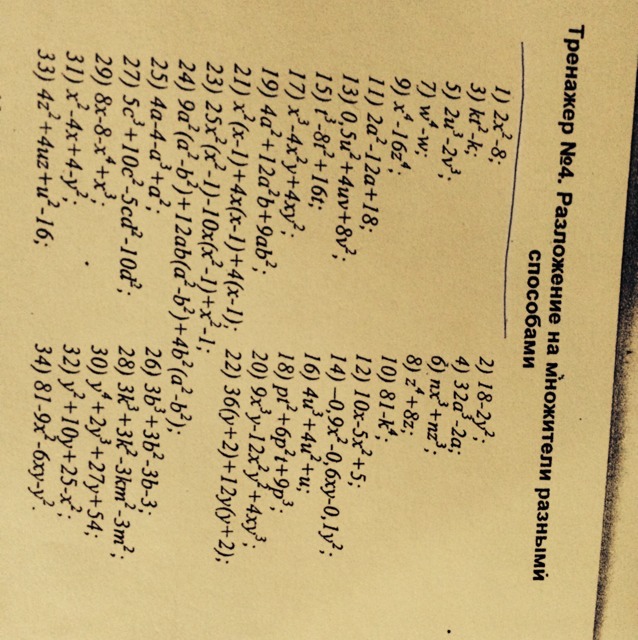 Тренажер №4. Разложение на множители разными
способами
1) 2x²-8; 2) 18-2y²;
3) kt²-k; 4) 32a³-2a;
5) 2u³-2v³; 6) nx³+nz³;
7) w⁴-w; 8) z⁴+8z;
9) x⁴-16z⁴; 10) 81-k⁴;
11) 2a²-12a+18; 12) 10x-5x²+5;
13) 0,5u²+4uv+8v²; 14) -0,9x²-0,6xy-0,1y²;
15) t³-8t²+16t; 16) 4u³+4u²+u;
17) x³-4x²y+4xy²; 18) pt²+6p²t+9p³;
19) 4a³+12a²b+9ab²; 20) 9x³y-12x²y²+4xy³;
21) x²(x-1)+4x(x-1)+4(x-1); 22) 36(y+2)+12y(y+2);
23) 25x²(x²-1)-10x(x²-1)+x²-1;
24) 9a²(a²-b²)+12ab(a²-b²)+4b²(a²-b²);
25) 4a-4-a³+a²; 26) 3b³+3b²-3b-3;
27) 5c³+10c²-5cd²-10d²; 28) 3k³+3k²-3km²-3m²;
29) 8x-8-x⁴+x³; 30) y⁴+2y³+27y+54;
31) x²-4x+4-y²; 32) y²+10y+25-x²;
33) 4z²+4uz+u²-16; 34) 81-9x²-6xy-y².